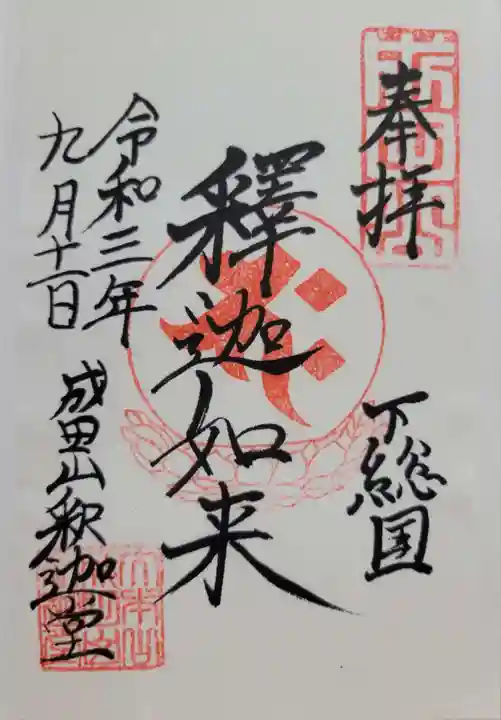 奉拝
下総国
釋迦如来
令和三年
九月十一日
成田山釈迦堂